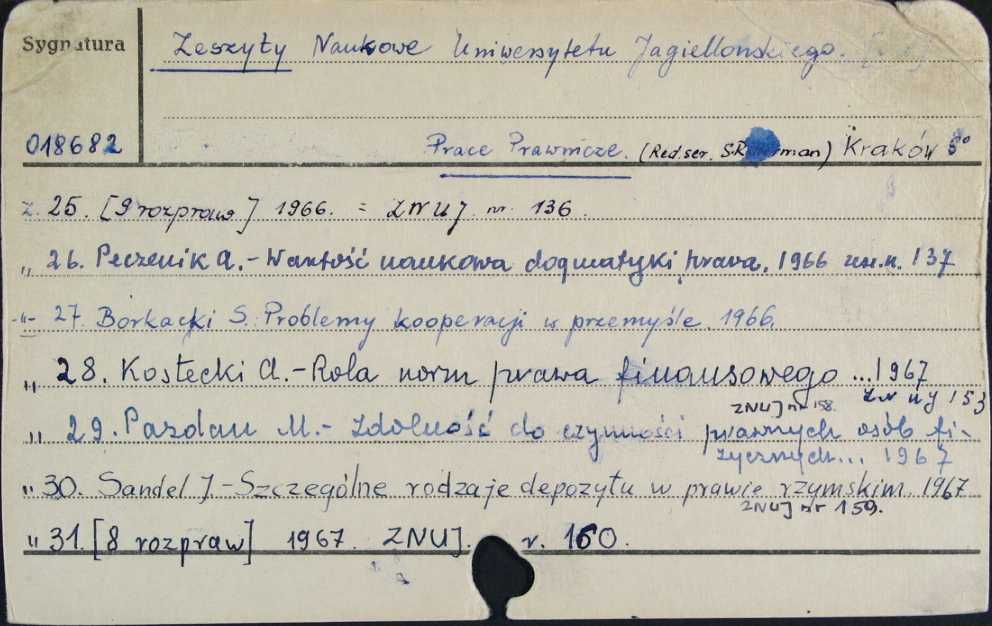 Sygnatura Zeszyty Naukowe Uniwersytetu Jagiellońskiego.
018682 Prace Prawnicze. (Red. ser. Kraków 8°
z. 25. [9 rozpraw] 1966. = ZNUJ. nr. 136.
" 26. Peczenik A. - Wartość naukowa dogmatyki prawa. 1966 137
-"- 27. Borkacki S. Problemy kooperacji w przemyśle. 1966.
" 28. Kostecki A. - Rola norm prawa finansowego ... 1967
ZNUJ 153
ZNUJ nr 158.
" 29. Pazdan M. - Zdolność do czynności prawnych osób fi-
zycznych... 1967
" 30. Sandel J. - Szczególne rodzaje depozytu w prawie rzymskim 1967
ZNUJ nr 159.
" 31. [8 rozpraw] 1967. ZNUJ. r. 160.